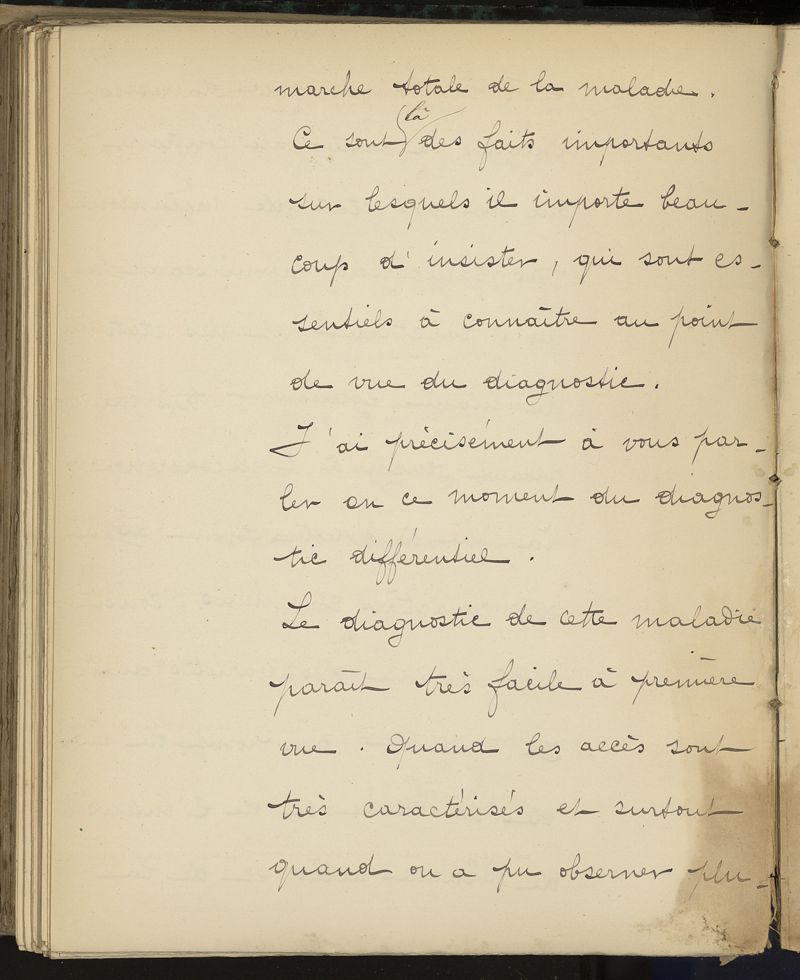 marche totale de la maladie.
Ce sont là des faits importants
sur lesquels il importe beau-
coup d'insister, qui sont es-
sentiels à connaître au point
de vue du diagnostic.
J'ai précisément à vous par-
ler en ce moment du diagnos-
tic différentiel.
Le diagnostic de cette maladie
paraît très facile à première
vue. Quand les accès sont
très caractérisés et surtout
quand on a pu observer plu-